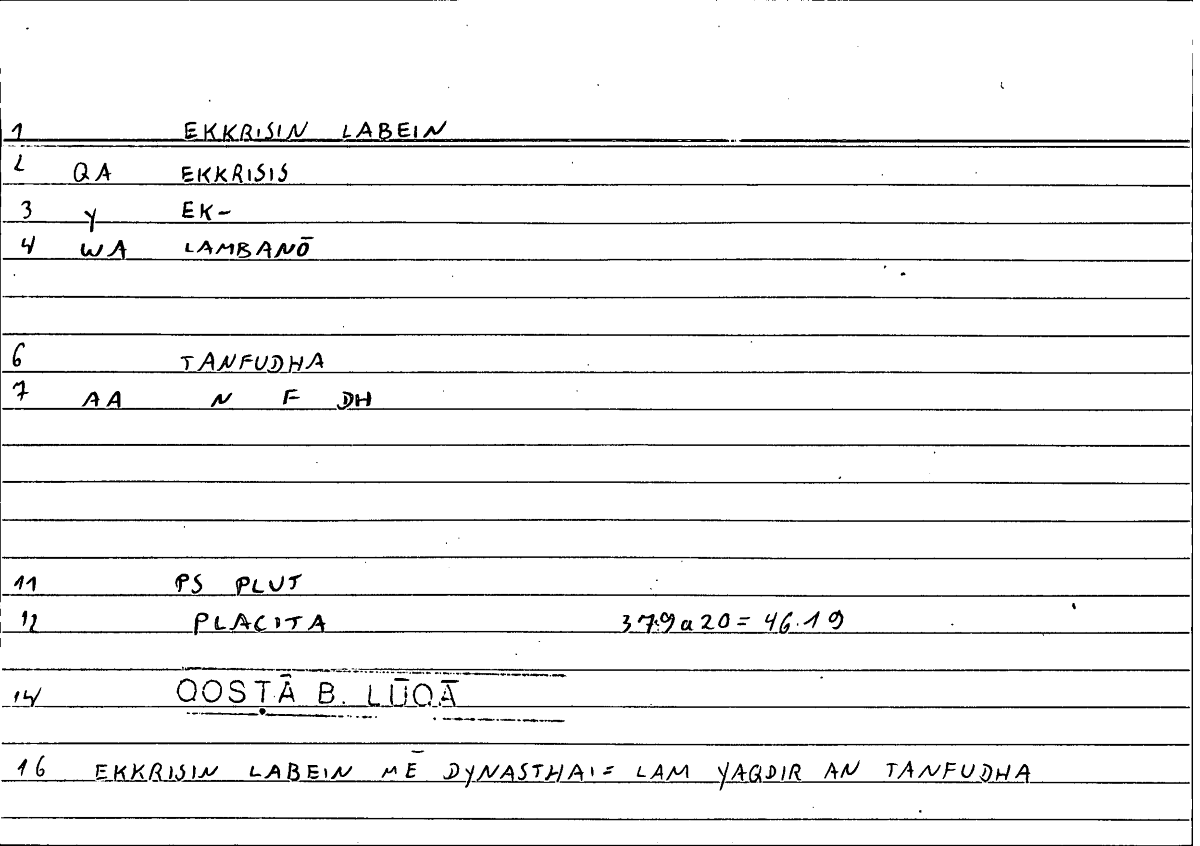 1 EKKRISIN LABEIN
2 QA EKKRISIS
3 Y EK-
4 WA LAMBANŌ
6 TANFUDHA
7 AA N F DH
11 PS PLUT
12 PLACITA 379a20 = 46.19
14 QOSṬĀ B. LŪQĀ
16 EKKRISIN LABEIN MĒ DYNASTHAI = LAM YAQDIR AN TANFUDHA